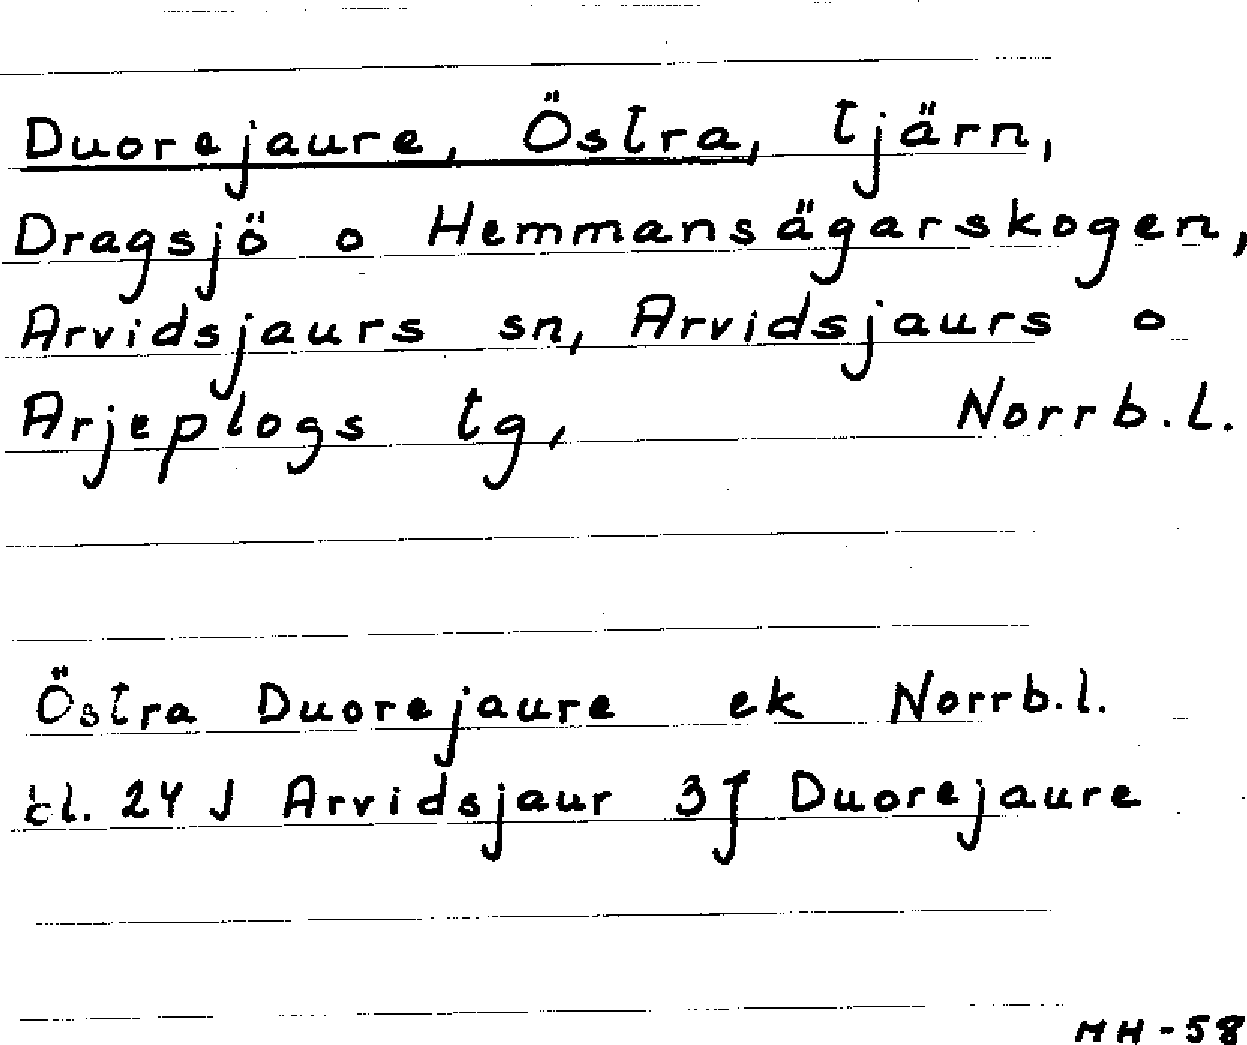 Duorejaure, Östra, tjärn,
Dragsjö o Hemmansägarskogen,
Arvidsjaurs sn, Arvidsjaurs o
Arjeplogs tg, Norrb.l.
Östra Duorejaure ek Norrb.l.
bl. 24 J Arvidsjaur 3j Duorejaure
MH-58